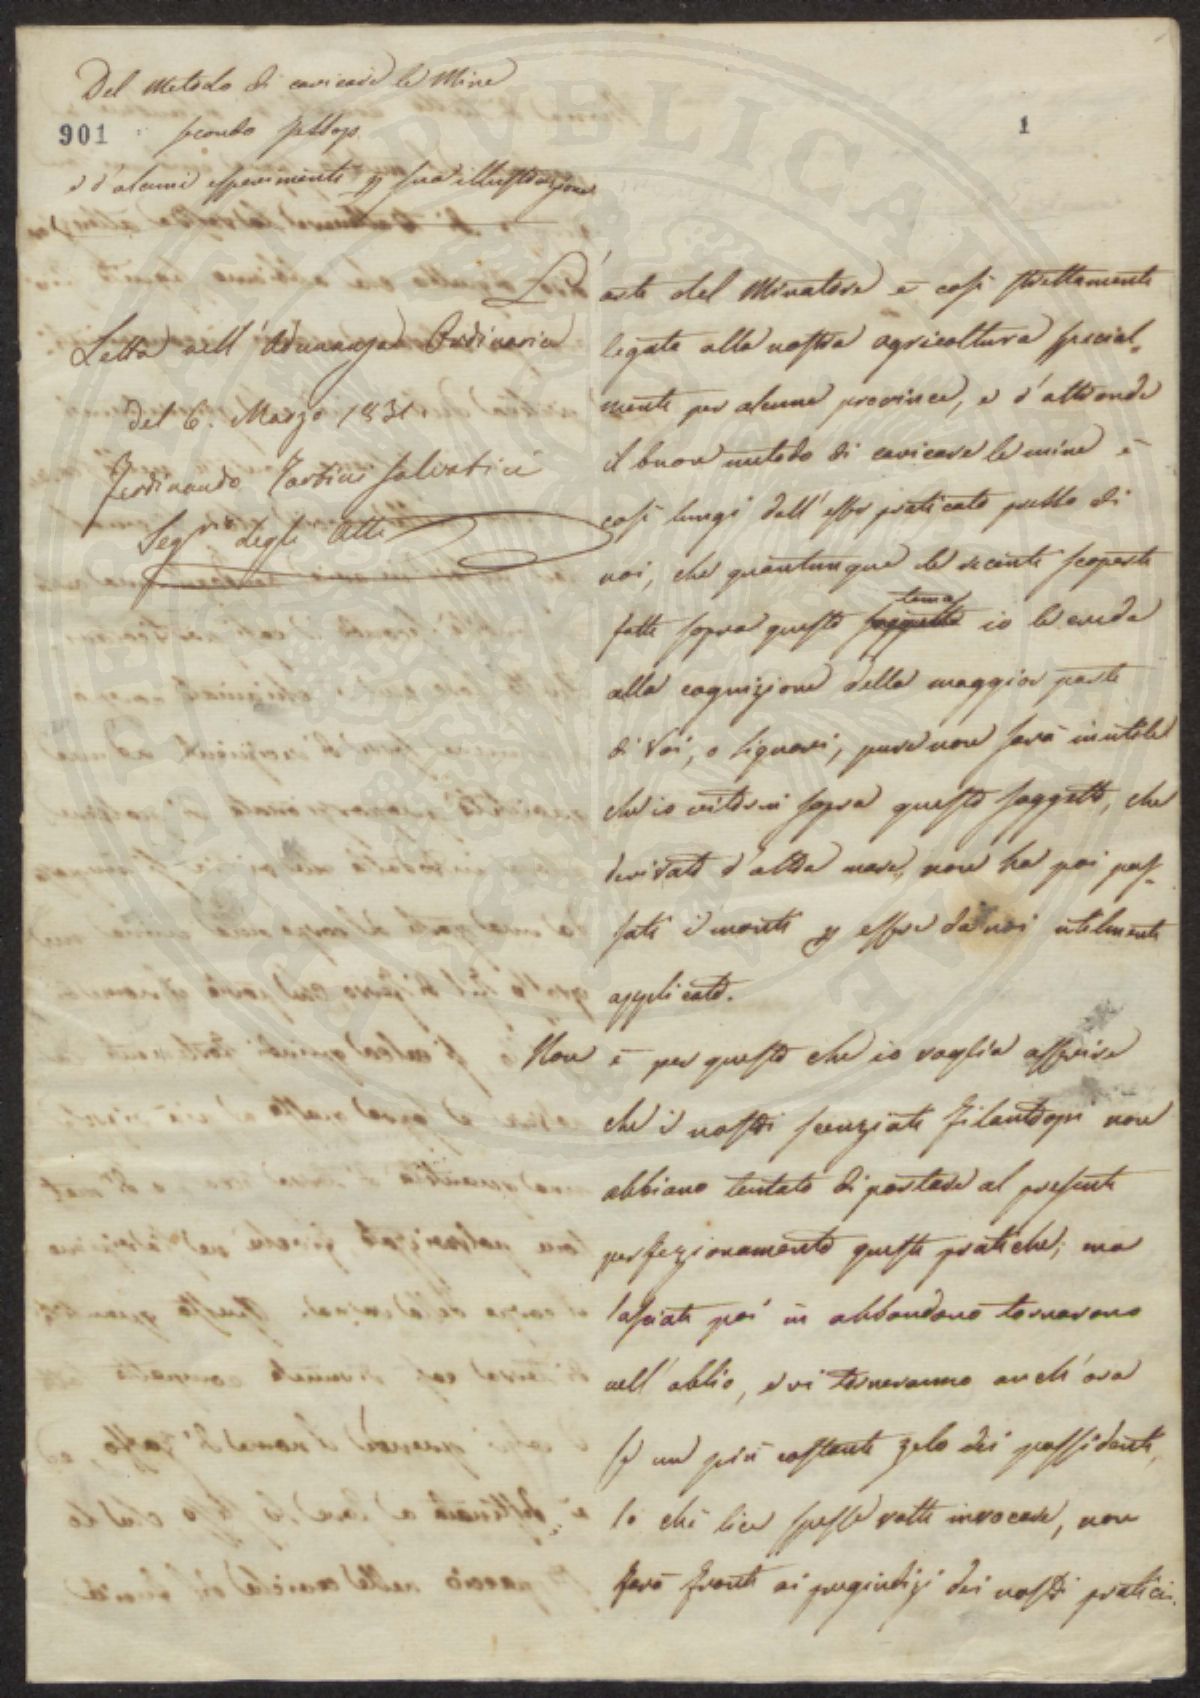 Del Metodo di caricare le Mine
901
secondo Jessop
1
e d'alcuni esperimenti p sua illustrazione
Letta nell'Adunanza Ordinaria
del 6. Marzo 1831
Ferdinando Tartini Salvatici
Segr.io degli Atti
L'arte del Minatore è così strettamente
legata alla nostra agricoltura special-
mente per alcune provincie, e d'altronde
il buon metodo di caricare le mine è
così lungi dall'esser praticato presso di
noi, che quantunque le recenti scoperte
fatte sopra questo soggetto tema io le creda
alla cognizione della maggior parte
di Voi, o Signori, pure non sarà inutile
che io ritorni sopra questo soggetto, che
derivato d'oltre mare, non ha poi pas-
sati i monti p esser da noi utilmente
applicato.
Non è per questo che io voglia asserire
che i nostri scenziati filantropi non
abbiano tentato di portare al presente
perfezionamento queste pratiche; ma
lasciate poi in abbandono tornarono
nell'oblio, e vi torneranno anch'ora
se un più costante zelo dei possidenti,
lo che lice spesse volte invocare, non
farà fronte ai pregiudizj dei nostri pratici.